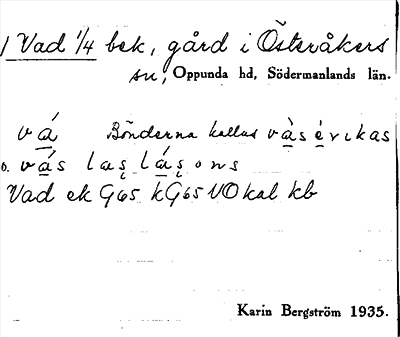 1 Vad 1/4 bek, gård i Österåkers
sn, Oppunda hd, Södermanlands län.
vá Bönderna kallas vàs évikas
o. vás las lásons
Vad ek G65 kG65 VOkal kb
Karin Bergström 1935.